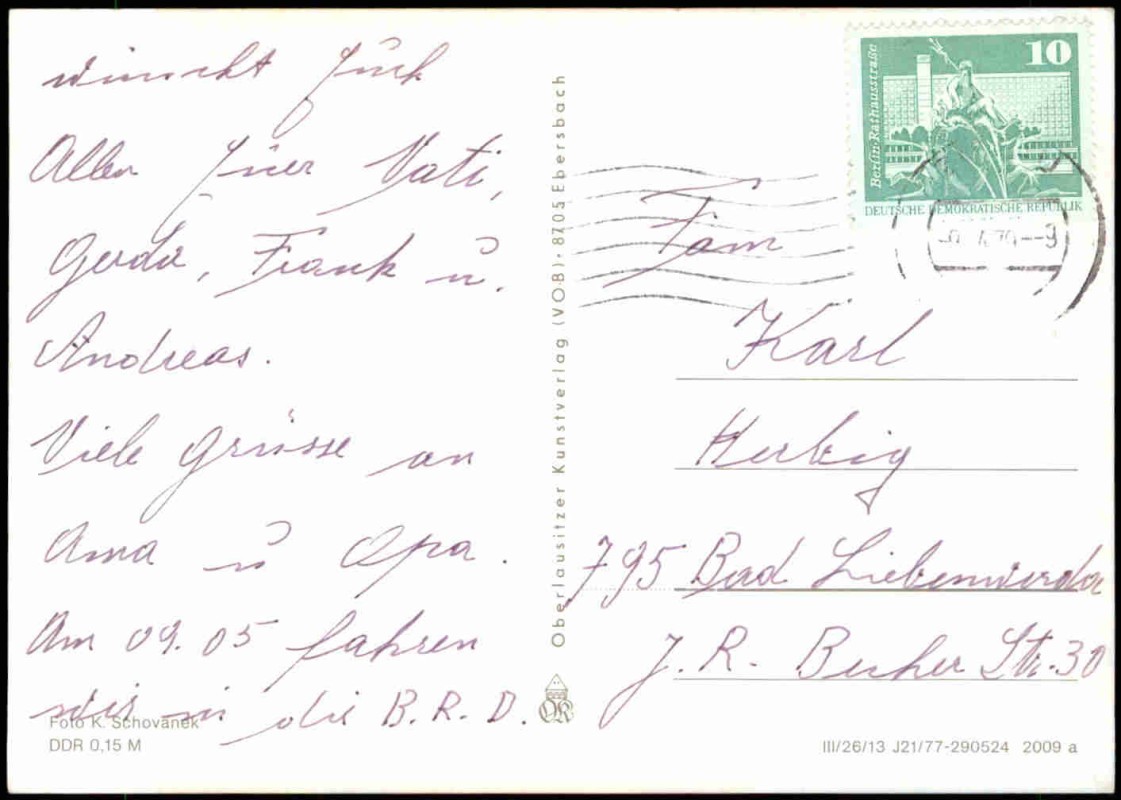 wünscht Euch
Allen Euer Vati,
Gerda, Frank u.
Andreas.
Viele Grüsse an
Oma u Opa.
Am 09.05 fahren
wir in die B.R.D.
Foto K. Schovanek
DDR 0,15 M
Oberlausitzer Kunstverlag (VOB) · 8705 Ebersbach
10
Berlin-Rathausstraße
DEUTSCHE DEMOKRATISCHE REPUBLIK
Fam
Karl
Herbig
795 Bad Liebenwerda
J. R. Becher Str. 30
III/26/13 J21/77-290524 2009 a